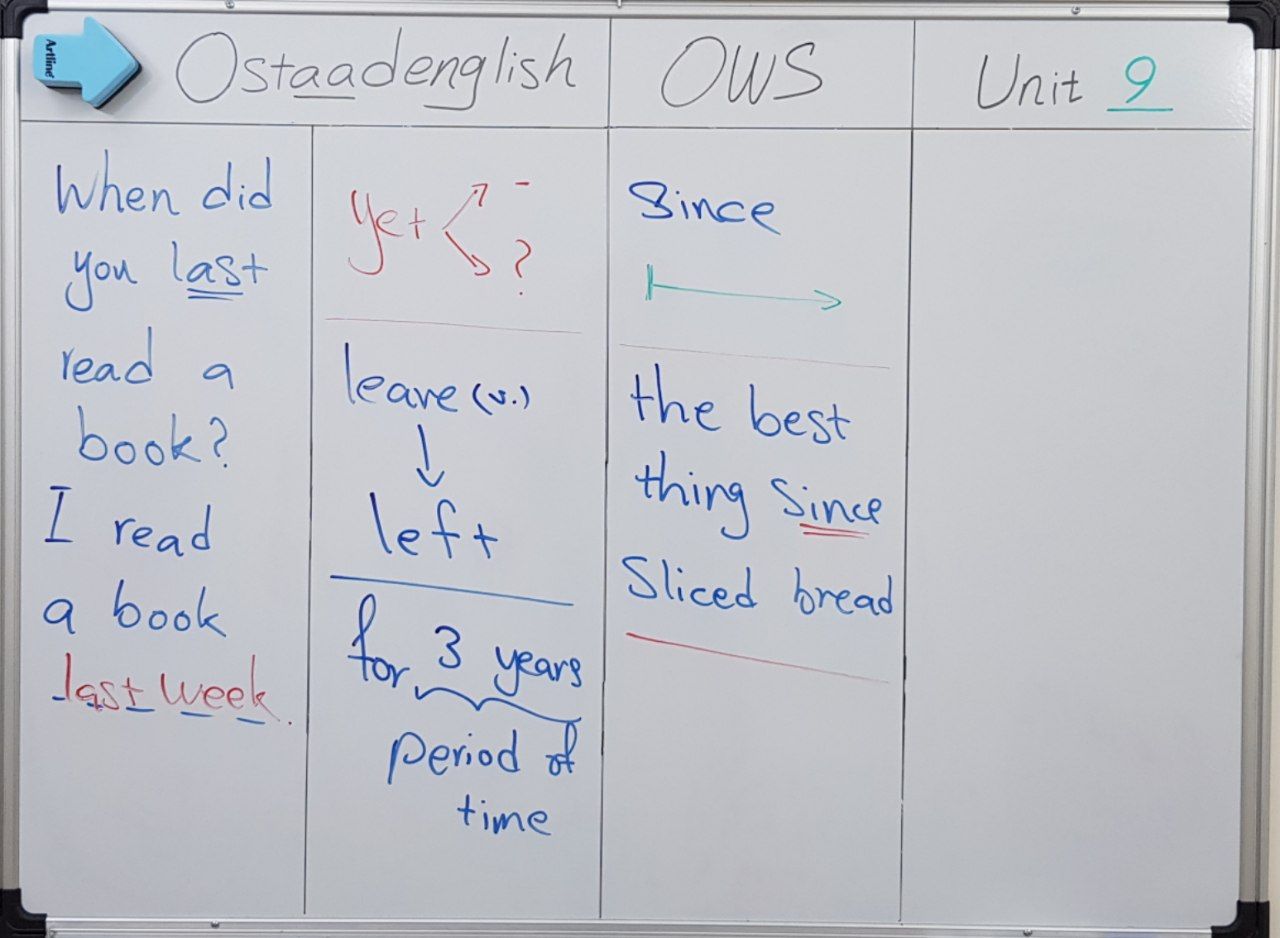 Artline
Ostaadenglish
OWS
Unit 9
When did
you last
read a
book?
I read
a book
last week.
yet -
?
leave (v.)
left
for 3 years
period of
time
Since
the best
thing Since
Sliced bread